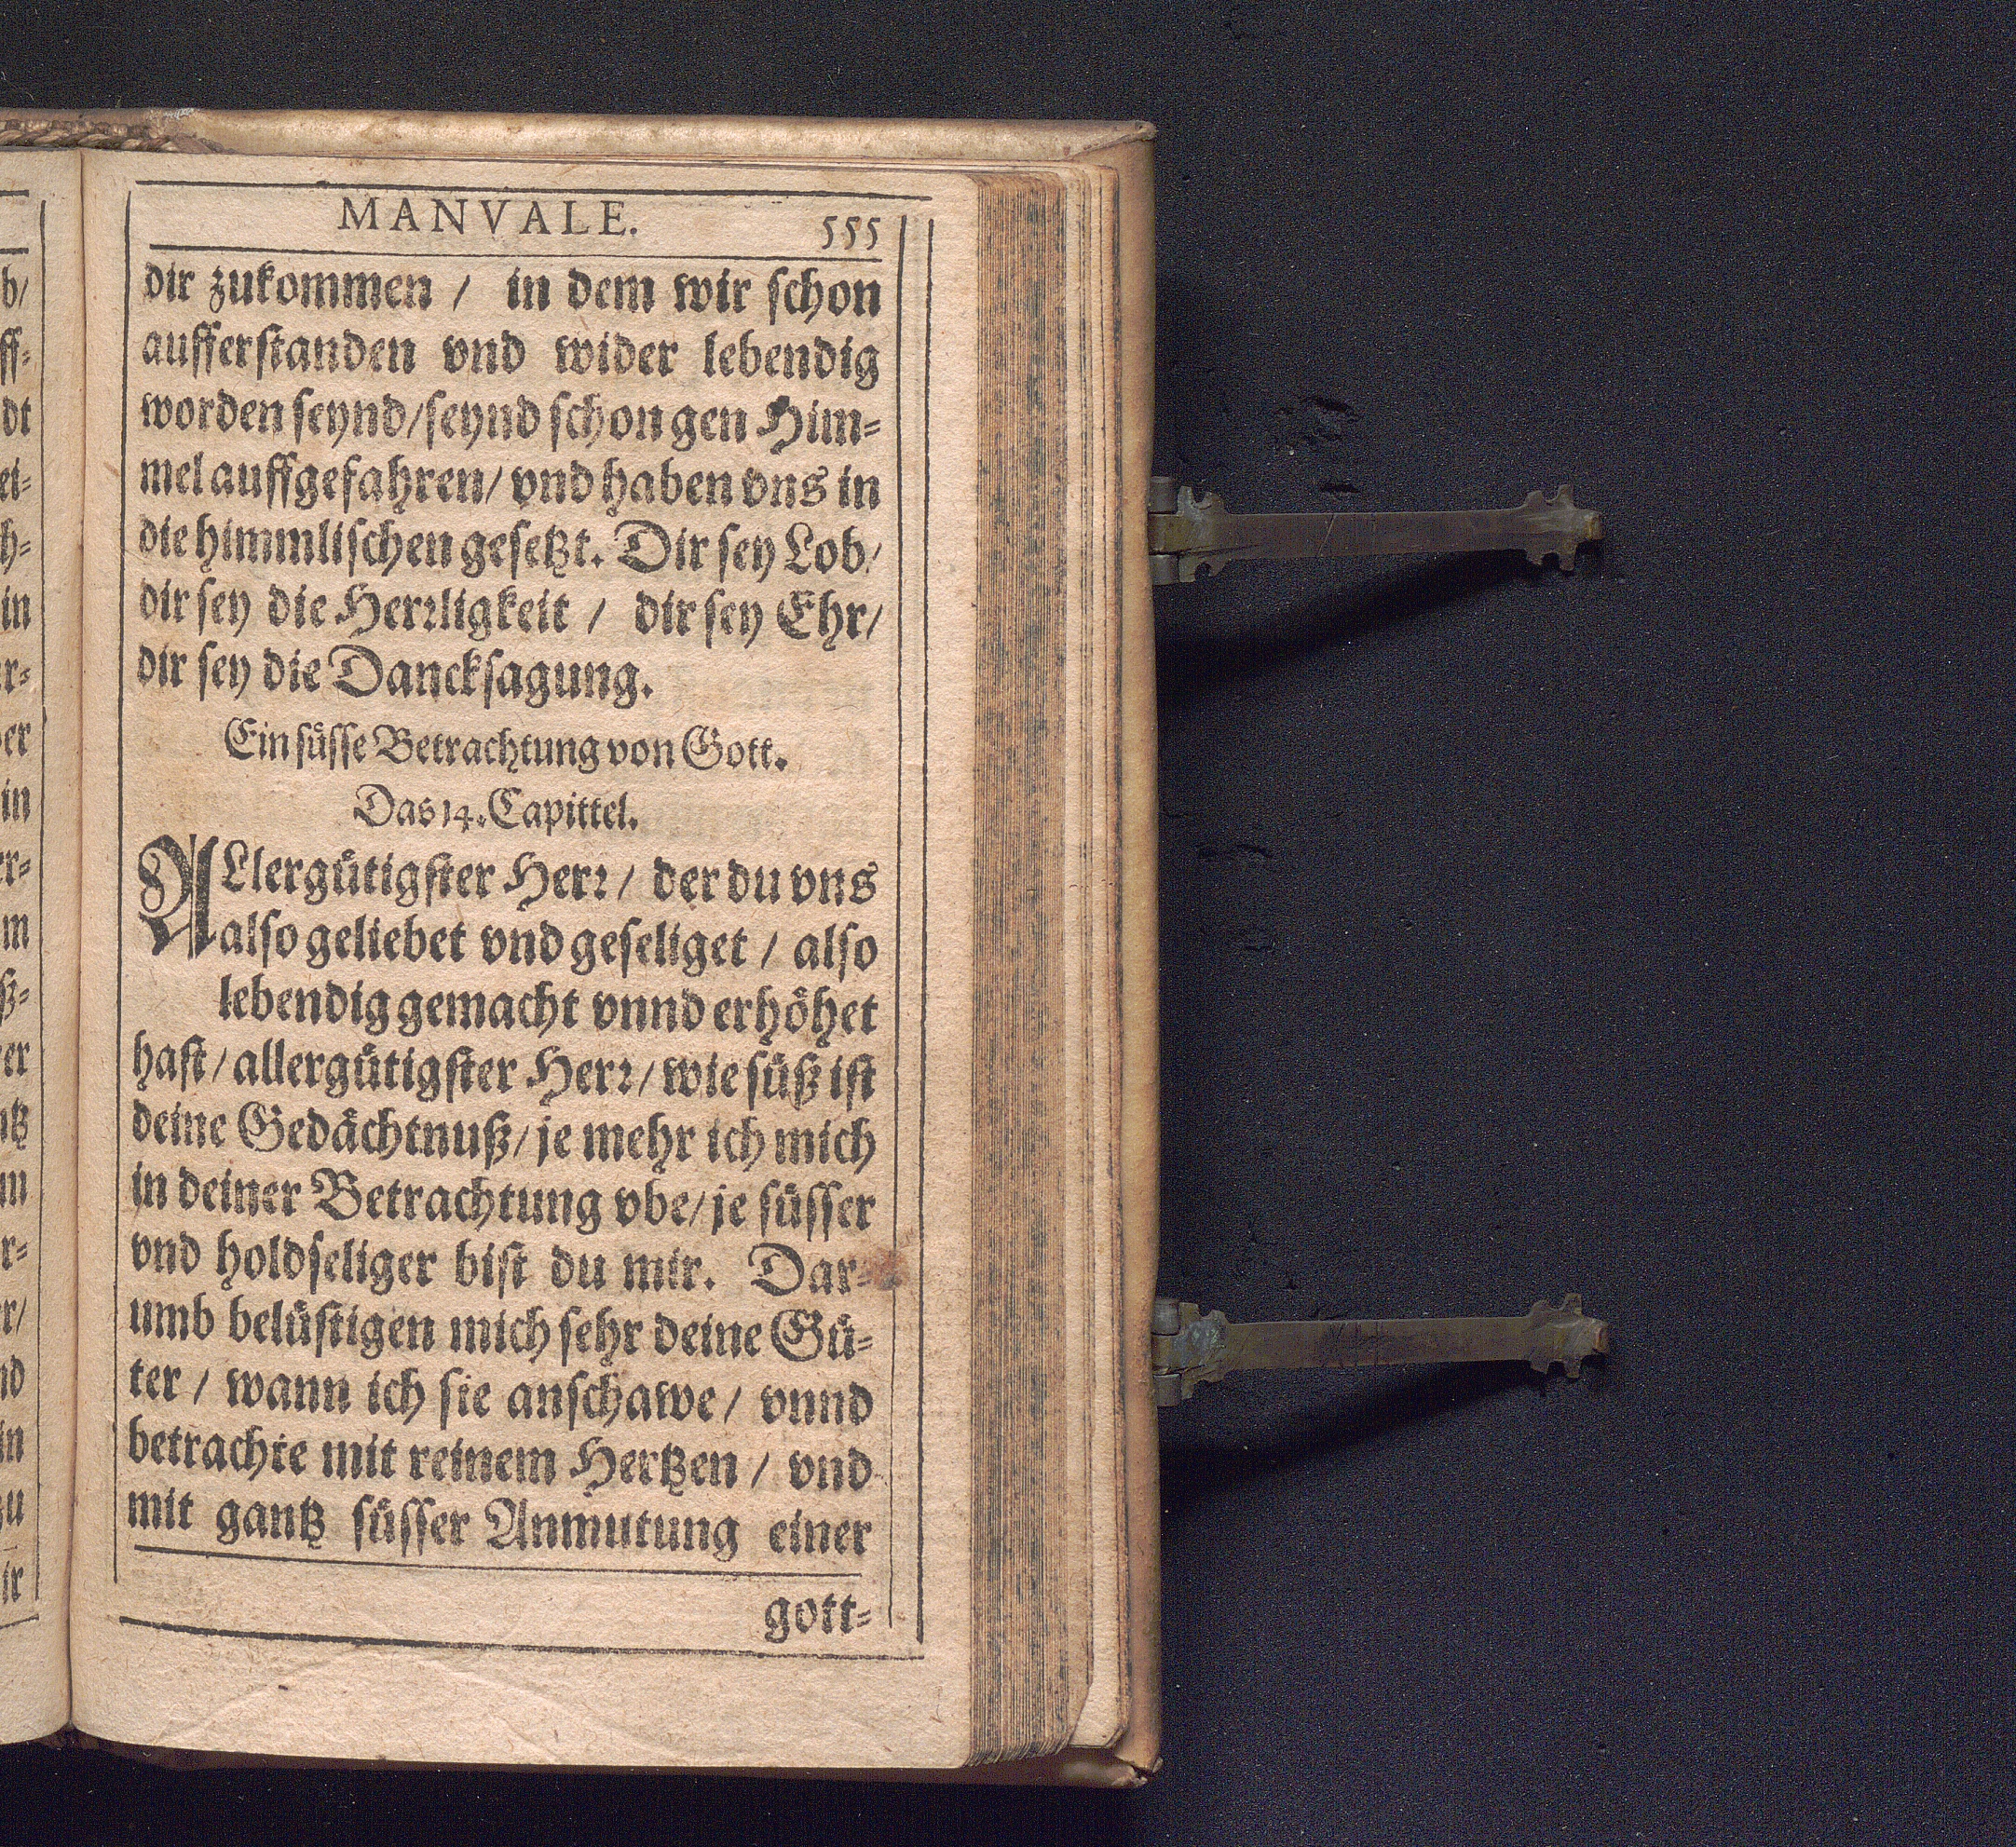 MANVALE. 555
dir zukommen / in dem wir schon
aufferstanden vnd wider lebendig
worden seynd/seynd schon gen Him-
mel auffgefahren/ vnd haben vns in
die himmlischen gesetzt. Dir sey Lob/
dir sey die Herrligkeit / dir sey Ehr/
dir sey die Dancksagung.
Ein süsse Betrachtung von Gott.
Das 14. Capittel.
ALlergütigster Herr / der du vns
also geliebet vnd geseliget / also
lebendig gemacht vnnd erhöhet
hast/ allergütigster Herr/ wie süß ist
deine Gedächtnuß/ je mehr ich mich
in deiner Betrachtung vbe/ je süsser
vnd holdseliger bist du mir. Dar-
umb belüstigen mich sehr deine Gü-
ter / wann ich sie anschawe / vnnd
betrachte mit reinem Hertzen / vnd
mit gantz süsser Anmutung einer
gott-